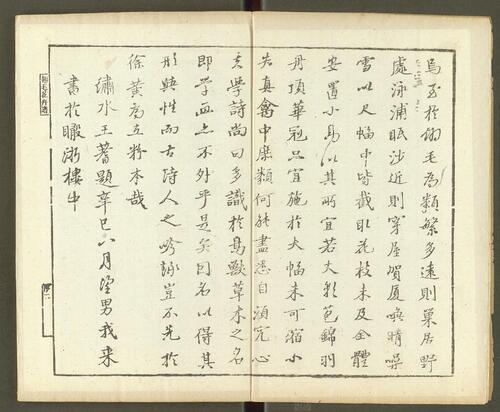 鳥至於翎毛為類繁多遠則巢居野
處泳浦眠沙近則穿屋賀厦喚晴噪
雪以尺幅中皆截取花枝未及全體
安置小鳥以其所宜若夫彩苞錦羽
丹頂華冠只宜施於大幅未可縮小
失真禽中眾類何能盡悉自須究心
學詩尚曰多識於鳥獸草木之名
即學畫亦不外乎是矣因名以得其
形與性而古詩人之吟詠豈不先於
徐黃為立粉本哉
繡水王蓍題辛巳八月望男我來
書於瞰浙樓中